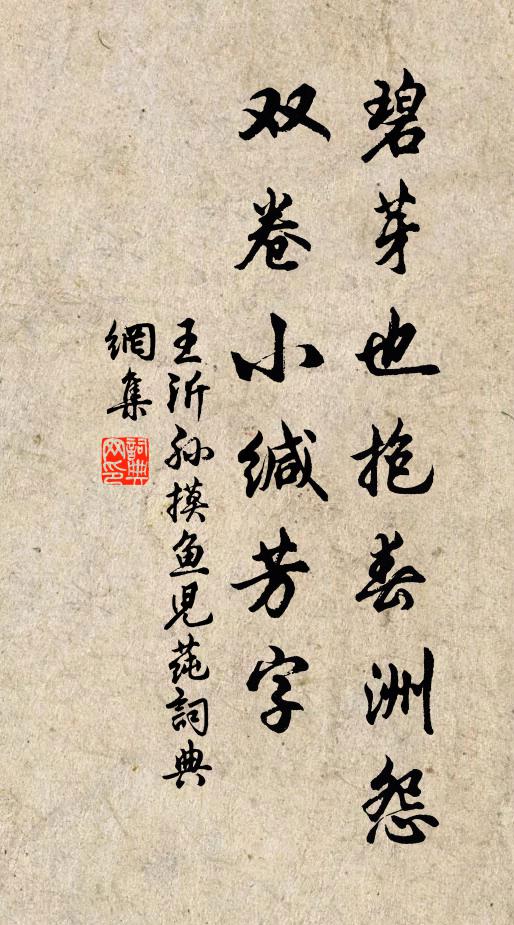 碧芽也抱春洲怨
双卷小缄芳字
王沂孙摸鱼児莼詞典
網集
詞典网印